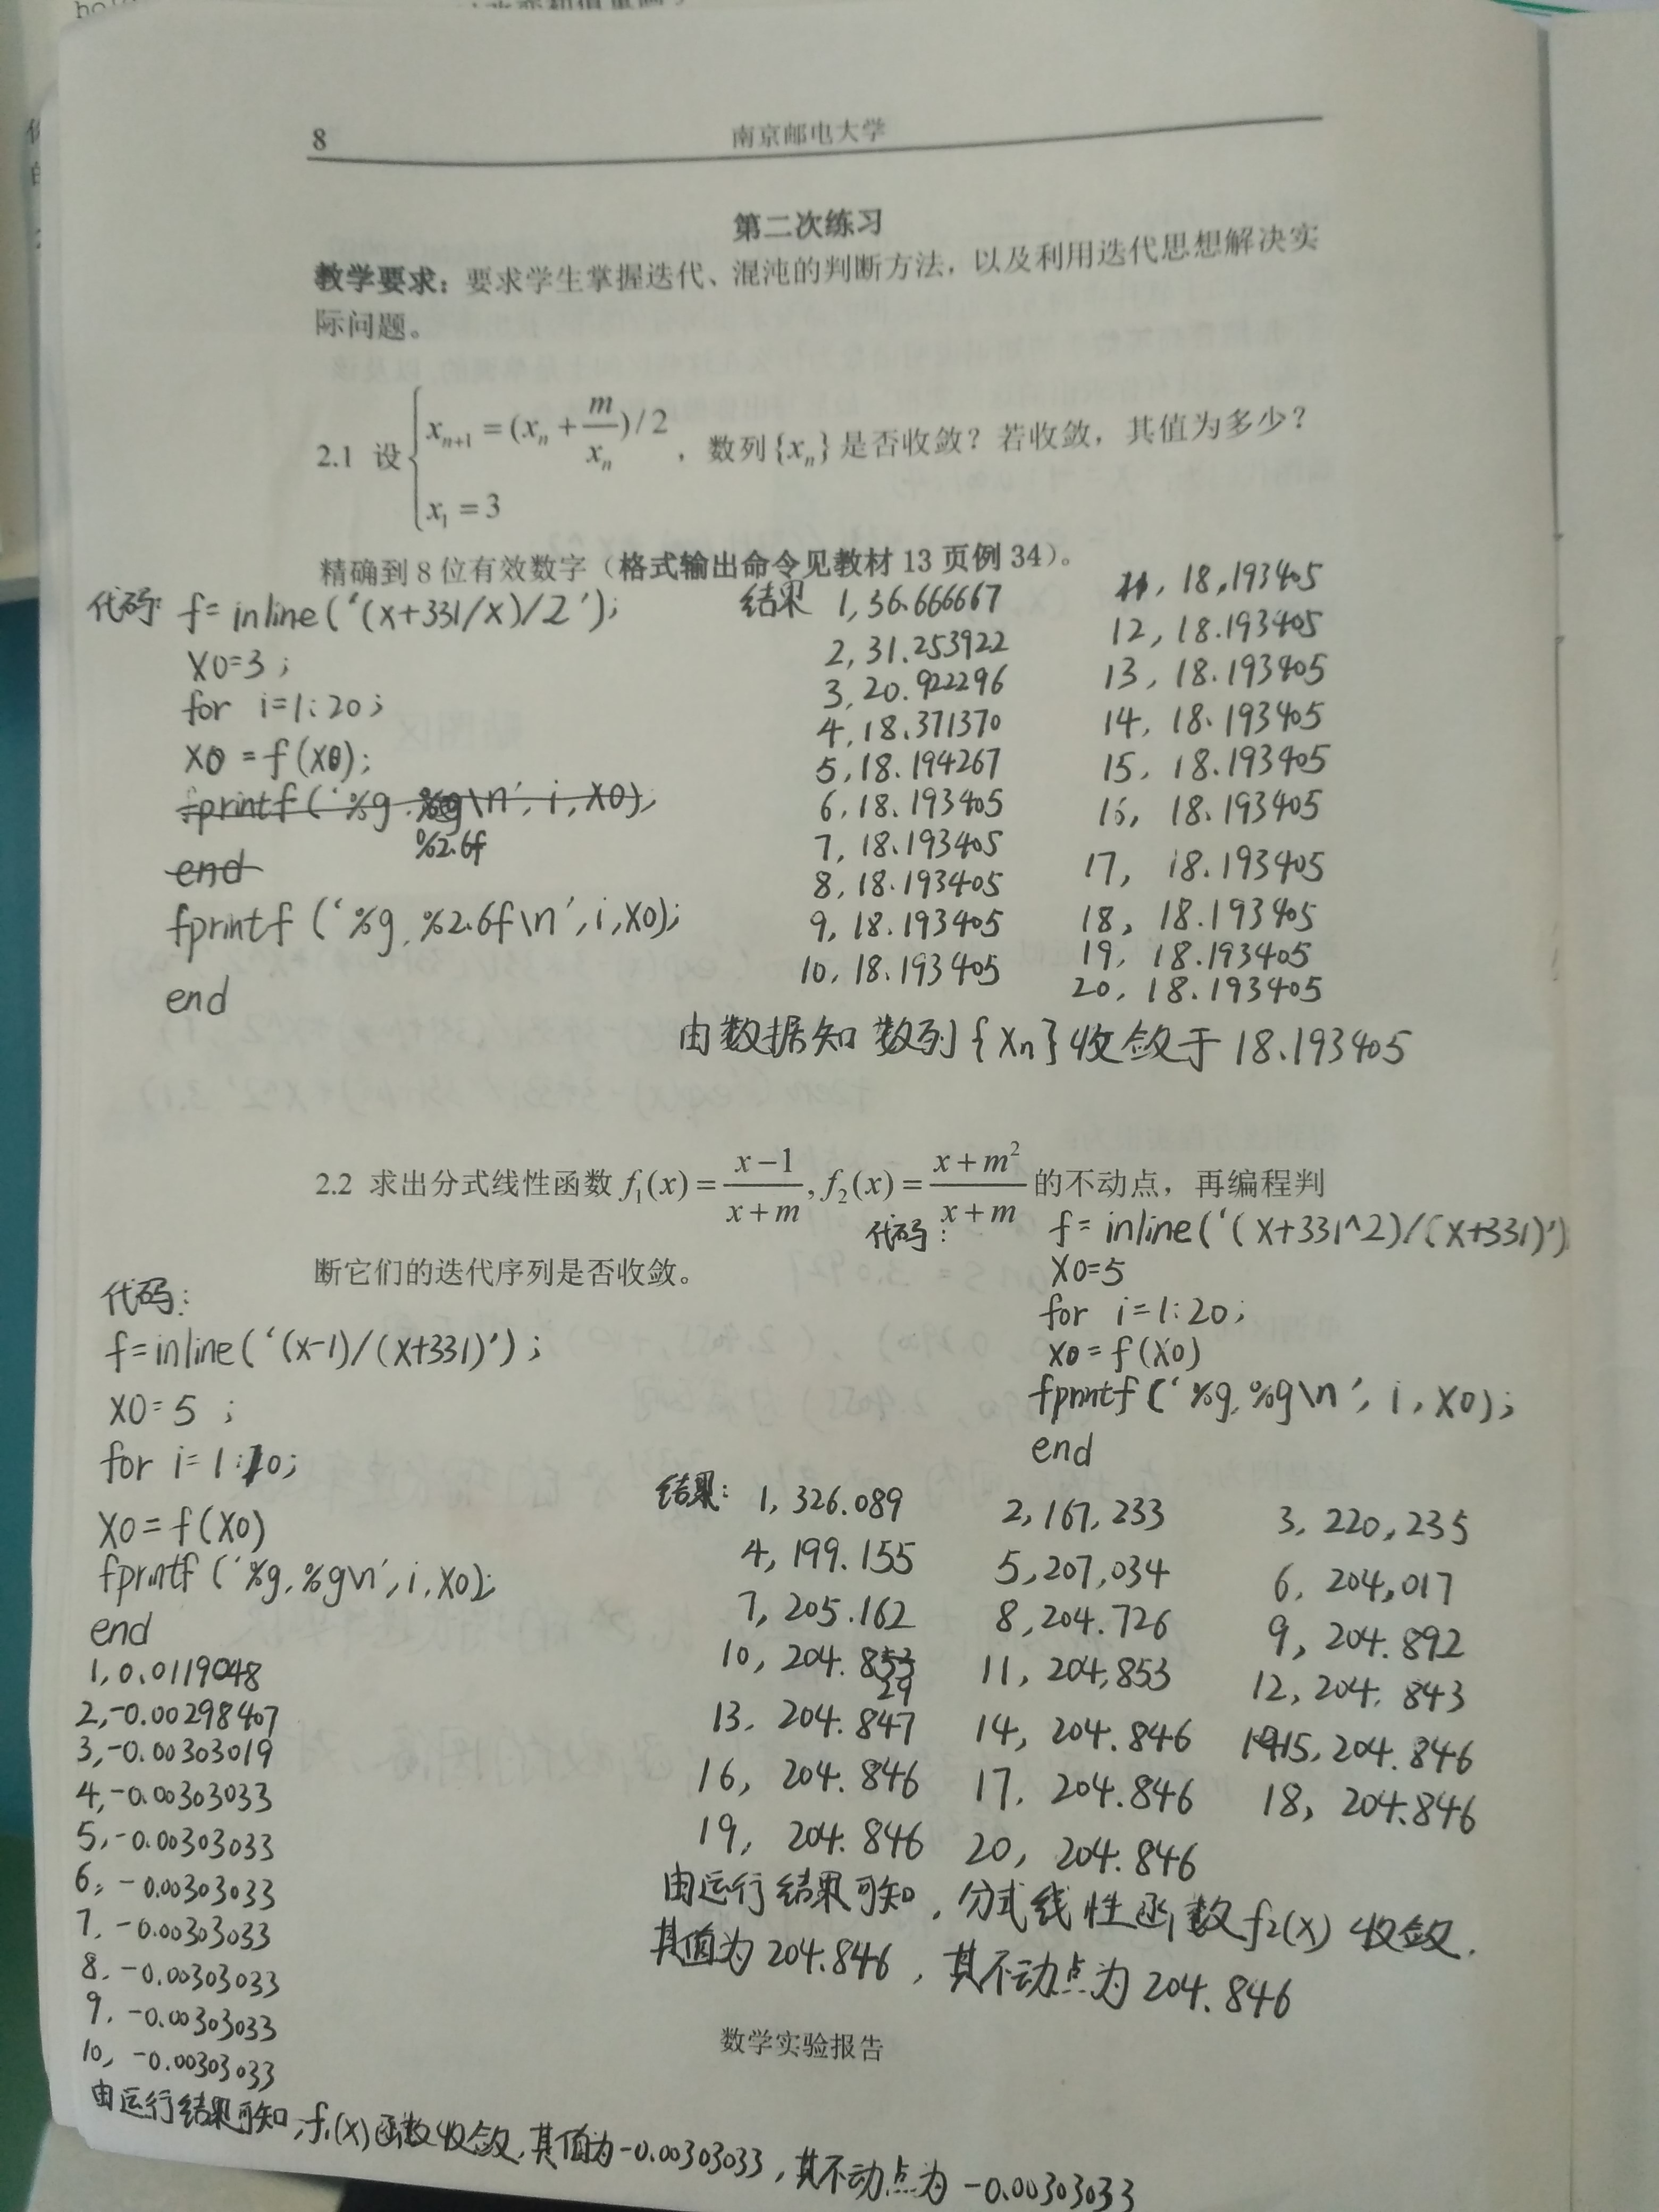 8
南京邮电大学
第二次练习
教学要求：要求学生掌握迭代、混沌的判断方法，以及利用迭代思想解决实
际问题。
2.1 设 { x_{n+1} = (x_n + m/x_n)/2 , 数列{x_n}是否收敛？若收敛，其值为多少？
x_1 = 3
精确到 8 位有效数字（格式输出命令见教材 13 页例 34）。
代码: f=inline('(x+331/x)/2');
X0=3;
for i=1:20;
X0=f(X0);
%2.6f
end
fprintf('%g,%2.6f\n',i,X0);
end
结果 1,56.666667
2,31.253922
3,20.922296
4,18.371370
5,18.194267
6,18.193405
7,18.193405
8,18.193405
9,18.193405
10,18.193405
11,18,193405
12,18.193405
13,18.193405
14,18.193405
15,18.193405
16,18.193405
17,18.193405
18,18.193405
19,18.193405
20,18.193405
由数据知 数列{Xn}收敛于18.193405
2.2 求出分式线性函数 f_1(x) = (x-1)/(x+m), f_2(x) = (x+m^2)/(x+m) 的不动点，再编程判
断它们的迭代序列是否收敛。
代码:
f=inline('(x-1)/(x+331)');
X0=5;
for i=1:10;
X0=f(X0)
fprintf('%g,%g\n',i,X0);
end
1,0.0119048
2,-0.00298407
3,-0.00303019
4,-0.00303033
5,-0.00303033
6,-0.00303033
7,-0.00303033
8,-0.00303033
9,-0.00303033
10,-0.00303033
由运行结果可知,f1(x)函数收敛,其值为-0.00303033,其不动点为-0.00303033
代码:
f=inline('(x+331^2)/(x+331)')
X0=5
for i=1:20;
X0=f(X0)
fprintf('%g,%g\n',i,X0);
end
结果: 1,326.089 2,167,233 3,220,235
4,199.155 5,207,034 6,204,017
7,205.162 8,204.726 9,204.892
10,204.829 11,204,853 12,204.843
13,204.847 14,204.846 15,204.846
16,204.846 17,204.846 18,204.846
19,204.846 20,204.846
由运行结果可知,分式线性函数f2(x)收敛.
其值为204.846,其不动点为204.846
数学实验报告